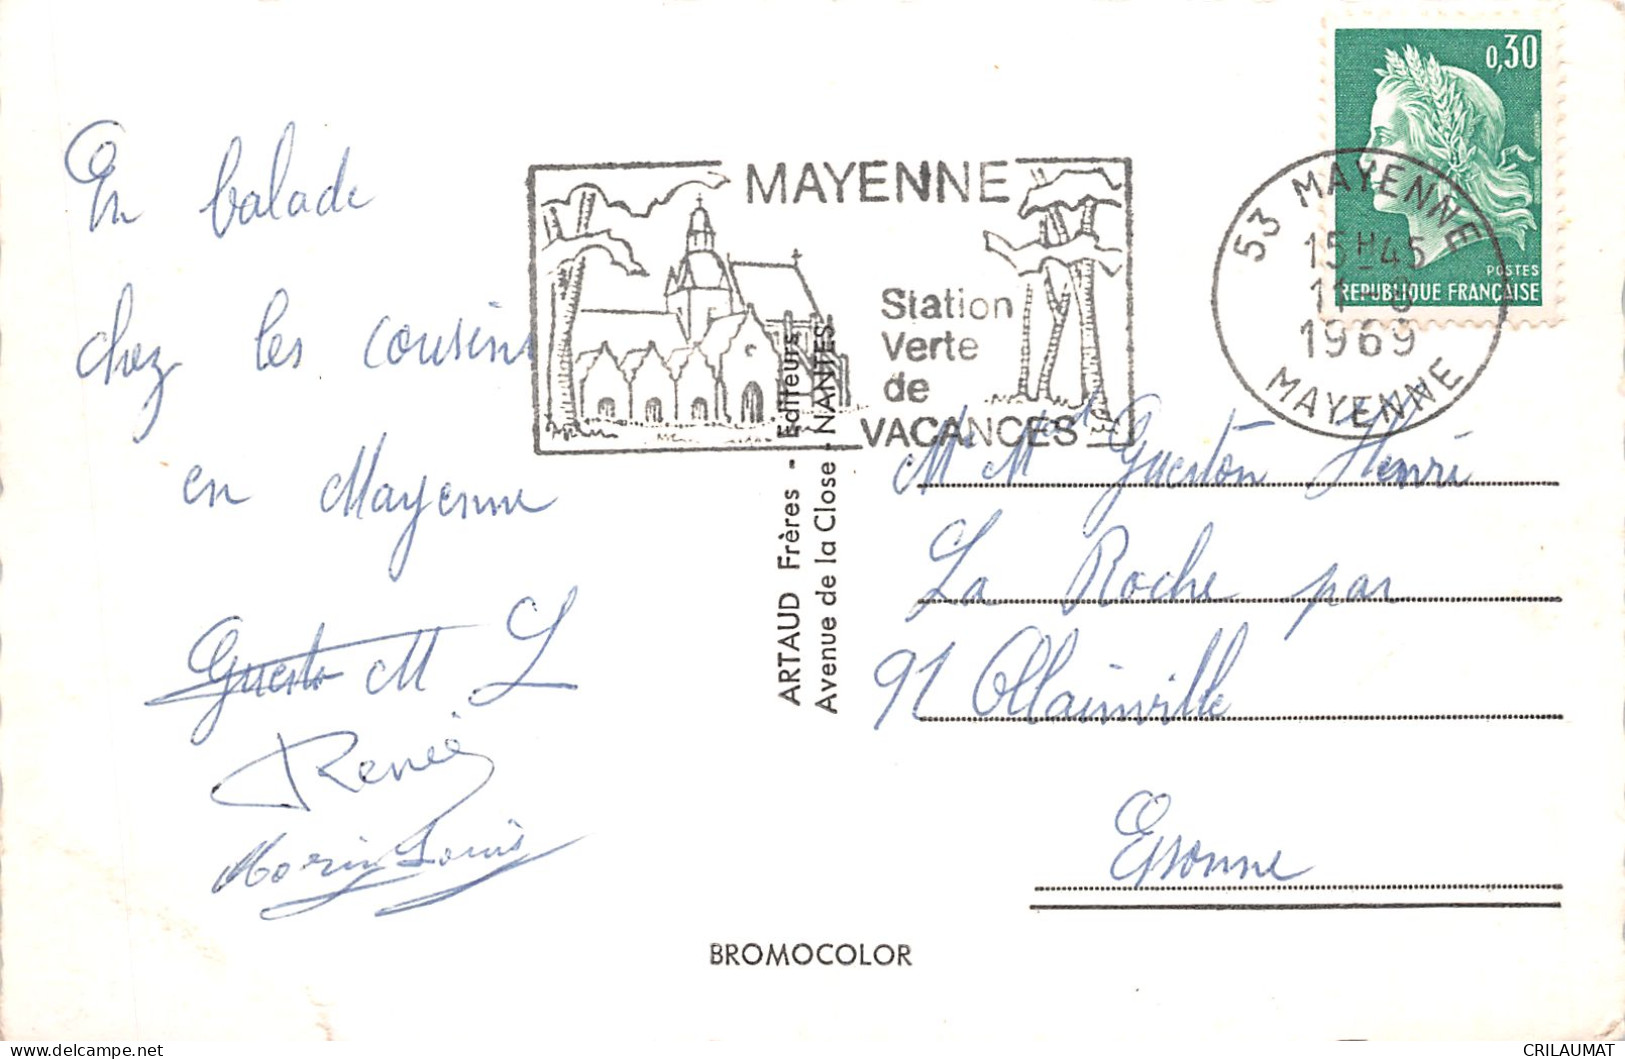 En balade
chez les cousins
en Mayenne
Guesto M L
Renée
Morin Louis
MAYENNE
Station
Verte
de
VACANCES
ARTAUD Frères - Éditeurs
Avenue de la Close - NANTES
0,30
POSTES
REPUBLIQUE FRANÇAISE
53 MAYENNE
15H45
1969
MAYENNE
Mr Med Guestton Henri
La Roche par
91 Ollainville
Essonne
BROMOCOLOR
CRILAUMAT